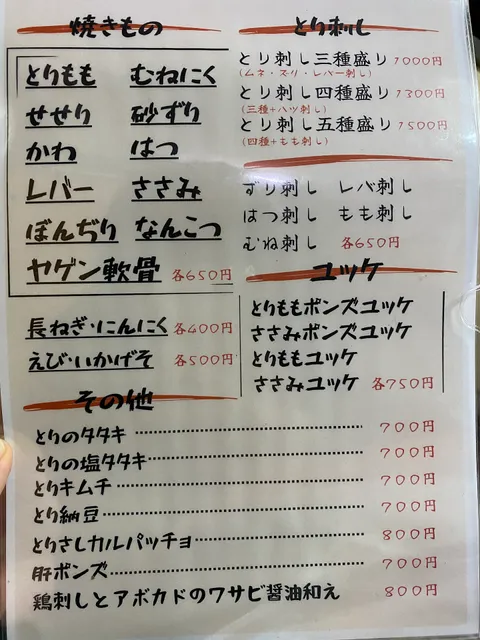 焼きもの
とりもも むねにく
せせり 砂ずり
かわ はつ
レバー ささみ
ぼんぢり なんこつ
ヤゲン軟骨 各650円
長ねぎ・にんにく 各400円
えび・いかげそ 各500円
とり刺し
とり刺し三種盛り 1000円
(ムネ・ズリ・レバー刺し)
とり刺し四種盛り 1300円
(三種+ハツ刺し)
とり刺し五種盛り 1500円
(四種+もも刺し)
ずり刺し レバ刺し
はつ刺し もも刺し
むね刺し 各650円
ユッケ
とりももポンズユッケ
ささみポンズユッケ
とりももユッケ
ささみユッケ 各750円
その他
とりのタタキ 700円
とりの塩タタキ 700円
とりキムチ 700円
とり納豆 700円
とりさしカルパッチョ 800円
肝ポンズ 700円
鶏刺しとアボカドのワサビ醤油和え 800円